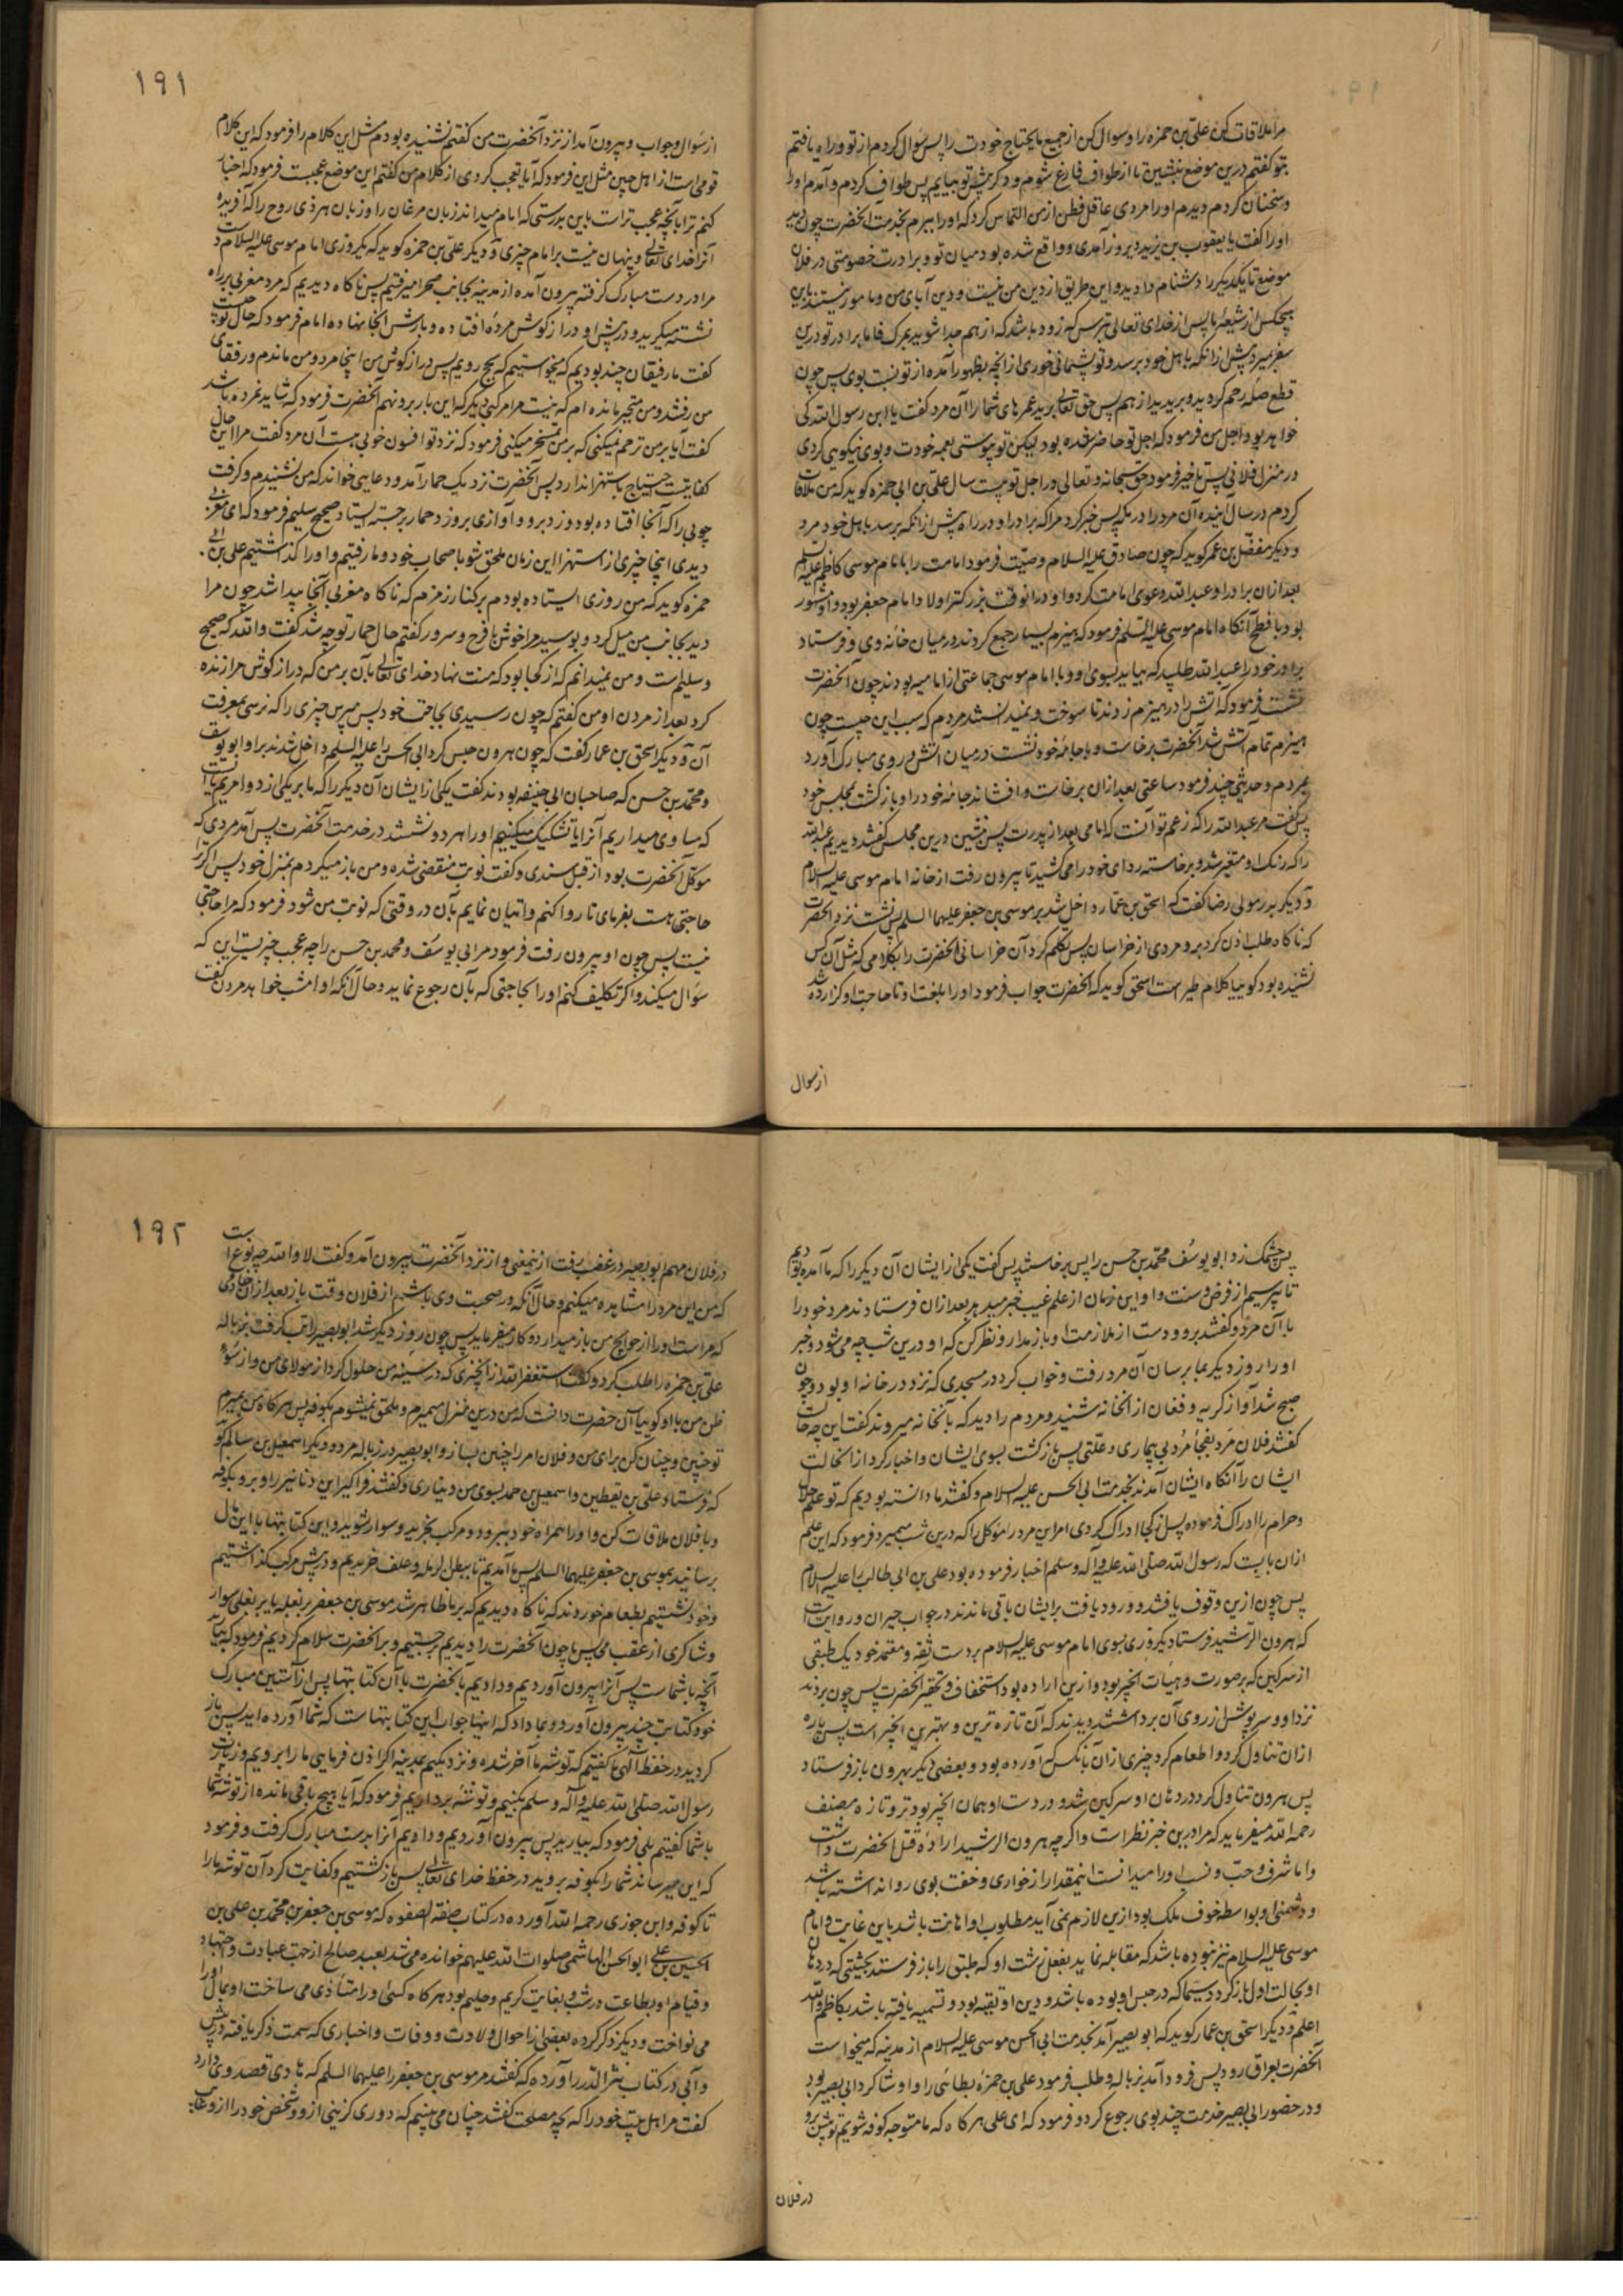 مرا ملاقات کن علی بن حمزه را و سوال کن از جمیع مایحتاج خودت را پس سوال کردم از تو و راه یافتم
بتو گفتم درین موضع بنشین تا از طواف فارغ شوم و دگر پیش تو بیایم پس طواف کردم و آمدم او را
و سخنان کردم دیدم او را مردی عاقل فطن از من التماس کرد که او را ببرم بخدمت آنحضرت چون دید
او را گفت یا یعقوب بن یزید دیروز آمدی و واقع شده بود میان تو و برادرت خصومتی در فلان
موضع تا یکدیگر را دشنام دادید و این طریق از دین من نیست و دین آبای من و مامور نیستند باین
هیچکس از شیعهٔ ما پس از خدای تعالی بترس که زود باشد که از هم جدا شوید بمرک فاما برادر تو درین
سفر بمیرد پیش از آنکه باهل خود برسد و تو پشیمانی خوری از آنچه بظهور آمده از تو نسبت بوی پس چون
قطع صله رحم کردید و بریدید از هم پس حق تعالی برید عمرهای شما را آن مرد گفت یا ابن رسول الله کی
خواهد بود اجل من فرمود که اجل تو حاضر شده بود لیکن تو پیوستی بعمه خودت و بوی نیکویی کردی
در منزل فلانی پس تاخیر فرمود حق سبحانه و تعالی در اجل تو بیست سال علی بن ابی حمزه کوید که من ملاقات
کردم در سال آینده آن مرد را در مکه پس خبر کرد مرا که برادر او در راه پیش از آنکه برسد باهل خود مرد
و دیگر مفضل بن عمر کوید که چون صادق علیه السلام وصیت فرمود امامت را بامام موسی کاظم علیه السلم
بعد از آن برادر او عبدالله دعوی امامت کرد و او در آنوقت بزرکتر اولاد امام جعفر بود و او مشهور
بود بافطح آنکاه امام موسی علیه السلم فرمود که هیزم بسیار جمع کردند در میان خانه وی و فرستاد
برادر خود را عبدالله طلبید که بیاید بسوی او و با امام موسی جماعتی از امامیه بودند چون آنحضرت
نشست فرمود که آتش را در هیزم زدند تا سوخت و نمیدانستند مردم که سبب این چیست چون
هیزم تمام آتش شد آنحضرت برخاست و با جامهٔ خود نشست در میان آتش و روی مبارک آورد
بمردم و حدیثی چند فرمود ساعتی بعد از آن برخاست و افشاند جامهٔ خود را و باز کشت بمجلس خود
پس گفت مر عبدالله را که زعم تو آنست که امامی بعد از پدرت پس بنشین درین مجلس گفتند دیدیم عبدالله
را که رنک او متغیر شد و برخاسته ردای خود را می کشید تا بیرون رفت از خانه امام موسی علیه السلام
و دیگر بدر مولی رضا گفت که اسحق بن عمار داخل شد بر موسی بن جعفر علیهما السلم پس نشست نزد آنحضرت
که ناکاه طلب اذن کرد برو مردی از خراسان پس تکلم کرد آن خراسانی آنحضرت را بکلامی که مثل آن کس
نشنیده بود کوییا کلام طیر است اسحق کوید که آنحضرت جواب فرمود او را بلغت او تا حاجت او کزارده شد
از سوال
١٩١
از سوال و جواب و بیرون آمد از نزد آنحضرت من گفتم نشنیده بودم مثل این کلام را فرمود که این کلام
قومی است از اهل چین مثل این فرمود که آیا تعجب کردی از کلام من گفتم این موضع عجبست فرمود که اخبار
کنم ترا بآنچه عجب تر است باین بدرستی که امام میداند زبان مرغان را و زبان هر ذی روح را که آفریده
آنرا خدای تعالی و پنهان نیست بر امام چیزی و دیگر علی بن حمزه کوید که یکروزی امام موسی علیه السلام دست
مرا در دست مبارک گرفته بیرون آمده از مدینه بجانب صحرا میرفتیم پس ناکاه دیدیم که مرد مغربی بر راه
نشسته میگرید و در پیش او دراز کوش مرده افتاده و بارش آنجا نهاده امام فرمود که حال تو چیست
گفت ما رفیقان چند بودیم که میخواستیم که بحج رویم پس دراز کوش من اینجا مرد و من ماندم و رفقای
من رفتند و من متحیر مانده ام که نیست مرا مرکبی دیگر که این بار برو نهم آنحضرت فرمود که شاید نمرده باشد
گفت آیا بر من ترحم نمیکنی که بر من تمسخر میکنی فرمود که نزد تو افسون خوبی هست آن مرد گفت مرا این حال
کفایت است احتیاج باستهزا ندارد پس آنحضرت نزدیک حمار آمد و دعایی خواند که من نشنیدم و گرفت
چوبی را که آنجا افتاده بود و زد برو و آوازی بروزد حمار برجسته ایستاد صحیح سلیم فرمود که ای مغربی
دیدی اینجا چیزی از استهزا این زمان ملحق شو باصحاب خود و ما رفتیم و او را گذاشتیم علی بن ابی
حمزه کوید که من روزی ایستاده بودم بر کنار زمزم که ناکاه مغربی آنجا پیدا شد چون مرا
دید بجانب من میل کرد و بوسید مرا خوش با فرح و سرور گفتم حال حمار تو چه شد گفت والله که صحیح
و سلیم است و من نمیدانم که از کجا بود که منت نهاد خدای تعالی بآن بر من که دراز کوش مرا زنده
کرد بعد از مردن او من گفتم که چون رسیدی بحاجت خود پس مپرس چیزی را که نرسی بمعرفت
آن و دیگر اسحق بن عمار گفت که چون هرون حبس کرد ابی الحسن را علیه السلم داخل شدند برو ابو یوسف
و محمد بن حسن که صاحبان ابی حنیفه بودند گفت یکی از ایشان آن دیگر را که ما بر یکی از دو امریم یا آنست
که مساوی میداریم آنرا یا تشکیک میکنیم او را هر دو نشستند در خدمت آنحضرت پس آمد مردی که
موکل آنحضرت بود از قبل سندی و گفت نوبت منقضی شده و من باز میگردم بمنزل خود پس اگر
حاجتی هست بفرمای تا روا کنم و اتیان نمایم بآن در وقتی که نوبت من شود فرمود که مرا حاجتی
نیست پس چون او بیرون رفت فرمود مر ابی یوسف و محمد بن حسن را چه عجب چیزیست این که
سوال میکند و اگر تکلیف کنم او را بحاجتی که بآن رجوع نماید و حال آنکه او امشب خواهد مردن گفت
پس چشمک زد ابو یوسف محمد بن حسن را پس برخاستند پس گفت یکی از ایشان آن دیگر را که ما آمده بودیم
تا پرسیم از فرض و سنت و او این زمان از علم غیب خبر میدهد بعد از آن فرستادند مرد خود را
با آن مرد و گفتند برو و دست از ملازمت او باز مدار و نظر کن که او درین شب چه می شود و خبر
او را روز دیگر بما برسان آن مرد رفت و خواب کرد در مسجدی که نزد در خانه او بود و چون
صبح شد آواز گریه و فغان از آنخانه شنید و مردم را دید که بآنخانه میروند گفت این چه حالست
گفتند فلان مرد بفجأ مرد بی بیماری و علتی پس بازگشت بسوی ایشان و اخبار کرد از آنحالت
ایشان را آنکاه ایشان آمدند بخدمت ابی الحسن علیه السلام و گفتند ما دانسته بودیم که تو علم حلال
و حرام را ادراک فرموده پس از کجا ادراک کردی امر این مرد را موکل را که درین شب میمیرد فرمود که این علم
از آن بابیست که رسول الله صلی الله علیه و آله و سلم اخبار فرموده بود علی بن ابی طالب را علیه السلام
پس چون ازین وقوف یافتند و ورود یافت بر ایشان باقی ماندند در جواب حیران و روایت است
که هرون الرشید فرستاد یکروزی بسوی امام موسی علیه السلام بدست ثقه و معتمد خود یک طبقی
از سرکین که بر صورت و هیات انجیر بود و ازین اراده بود استخفاف و تحقیر آنحضرت پس چون بردند
نزد او و سرپوش از روی آن برداشتند دیدند که آن تازه ترین و بهترین انجیر است پس پاره
از آن تناول کرد و اطعام کرد چیزی از آن بآنکس که آورده بود و بعضی دیگر بهرون باز فرستاد
پس هرون تناول کرد در دهان او سرکین شد و در دست او همان انجیر بود تر و تازه مصنف
رحمه الله میفرماید که مرا درین خبر نظر است و اگرچه هرون الرشید ارادهٔ قتل آنحضرت داشت
و اما شرف و حسب و نسب او را میدانست اینمقدار از خواری و خفت بوی روا نداشته باشد
و دشمنی او بواسطه خوف ملک بود ازین لازم نمی آید مطلوب او اهانت باشد باین غایت و امام
موسی علیه السلام نیز نبوده باشد که مقابله نماید بفعل زشت او که طبق را باز فرستد بحیثیتی که در دهان
او بحالت اول باز گردد سیما که در حبس او بوده باشد و دین او تقیه بود و تسمیه یافته باشد بکاظم والله
اعلم و دیگر اسحق بن عمار کوید که ابو بصیر آمد بخدمت ابی الحسن موسی علیه السلام از مدینه که میخواست
آنحضرت بعراق رود پس فرود آمد بزباله و طلب فرمود علی بن حمزهٔ بطائنی را و او شاگرد ابی بصیر بود
و در حضور ابی بصیر خدمت چند بوی رجوع کرد و فرمود که ای علی هرکاه که ما متوجه کوفه شویم تو پیش برو
در فلان
١٩٢
در فلان مهم ابو بصیر در غضب رفت ازینمعنی و از نزد آنحضرت بیرون آمد و گفت لا والله چه نوع است
که من این مرد را مشاهده میکنم و حال آنکه در صحبت وی باشم از فلان وقت باز بعد از آن حادی
که مر است او را از حوایج من باز میدارد و کار میفرماید پس چون روز دیگر شد ابو بصیر را تب گرفت بزباله
علی بن حمزه را طلب کرد و گفت استغفر الله از آنچیزی که در سینه من حلول کرد از مولای من و از سوء
ظن من با او کوییا آن حضرت دانست که من درین منزل میمیرم و ملحق نمیشوم بکوفه پس هرکاه من بمیرم
تو چنین و چنان کن برای من و فلان امر را چنین بساز و ابو بصیر در زباله مرد و دیگر اسمعیل بن سالم کوید
که فرستاد علی بن یقطین و اسمعیل بن حمد بسوی من دیناری و گفتند فراگیر این دنانیر را و برو بکوفه
و با فلان ملاقات کن و او را همراه خود ببر و دو مرکب بخرید و سوار شوید و این کتابتها با این مال
برسانید بموسی بن جعفر علیهما السلم پس ما آمدیم تا ببطن الرمله و علف خریدیم و در پیش مرکب گذاشتیم
و خود نشستیم بطعام خوردن که ناکاه دیدیم که بر ما ظاهر شد موسی بن جعفر بر بغله یا بر بغلی سوار
و شاکری از عقب می آمد پس ما چون آنحضرت را دیدیم برجستیم و بر آنحضرت سلام کردیم فرمود که بیارید
آنچه با شماست پس آنرا بیرون آوردیم و دادیم بآنحضرت با آن کتابتها پس از آستین مبارک
خود کتابت چند بیرون آورد و بما داد که اینها جواب این کتابتهاست که شما آورده اید پس باز
گردید در حفظ الهی ما گفتیم که توشه ما آخر شده و نزدیکیم بمدینه اگر اذن فرمایی ما را برویم و زیارت
رسول الله صلی الله علیه و آله و سلم بکنیم و توشه برداریم فرمود که آیا هیچ باقی مانده از توشه شما
با شما گفتیم بلی فرمود که بیارید پس بیرون آوردیم و دادیم آنرا بدست مبارک گرفت و فرمود
که این میرساند شما را بکوفه بروید در حفظ خدای تعالی پس بازگشتیم و کفایت کرد آن توشه ما را
تا کوفه و ابن جوزی رحمه الله آورده در کتاب صفة الصفوه که موسی بن جعفر بن محمد بن علی بن
الحسین بن علی ابو الحسن الهاشمی صلوات الله علیهم خوانده می شد بعبد صالح از جهت عبادت و اجتهاد
و قیام او بطاعت در شب و بغایت کریم و حلیم بود هرکاه کسی او را متأذی می ساخت او بمال او را
می نواخت و دیگر ذکر کرده بعضی از احوال ولادت و وفات و اخباری که سمت ذکر یافته در پیش
و آبی در کتاب نثر الدرر آورده که گفتند مر موسی بن جعفر را علیهما السلم که هادی قصد وی دارد
گفت مر اهل بیت خود را که چه مصلحت گفتند چنان می بینیم که دوری گزینی ازو و شخص خود را ازو غایب